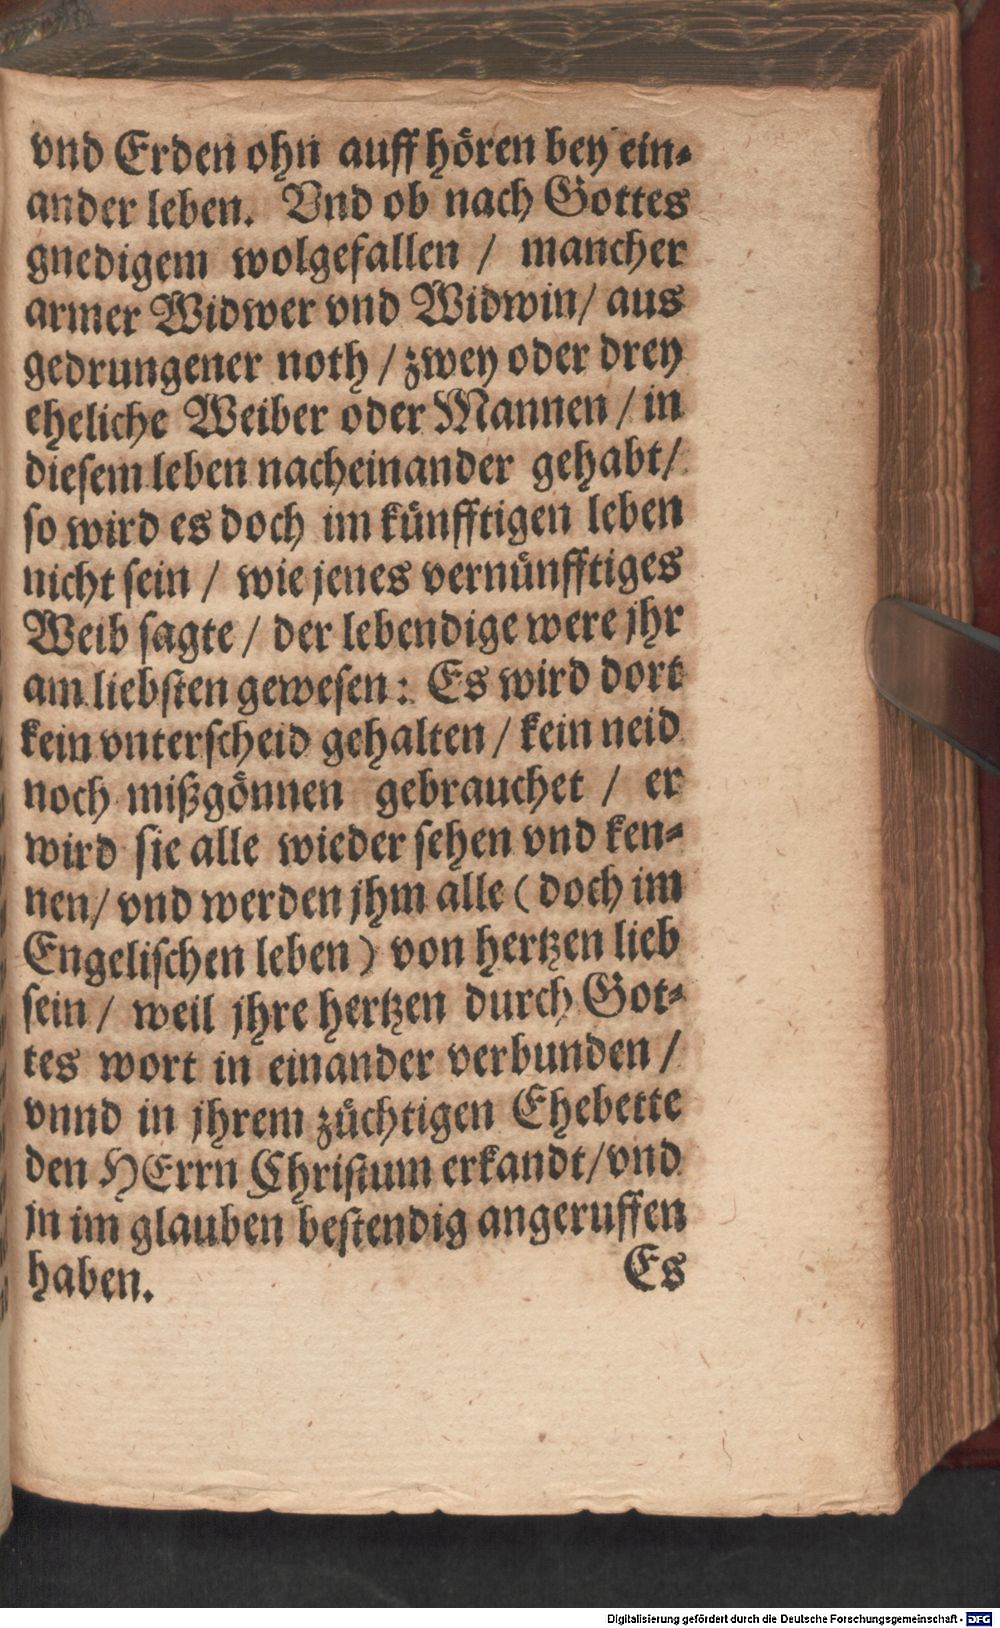 vnd Erden ohn auffhören bey ein-
ander leben. Vnd ob nach Gottes
gnedigem wolgefallen / mancher
armer Widwer vnd Widwin/ aus
gedrungener noth / zwey oder drey
eheliche Weiber oder Mannen / in
diesem leben nacheinander gehabt/
so wird es doch im künfftigen leben
nicht sein / wie jenes vernünfftiges
Weib sagte / der lebendige were jhr
am liebsten gewesen: Es wird dort
kein vnterscheid gehalten / kein neid
noch mißgönnen gebrauchet / er
wird sie alle wieder sehen vnd ken-
nen/ vnd werden jhm alle ( doch im
Engelischen leben ) von hertzen lieb
sein / weil jhre hertzen durch Got-
tes wort in einander verbunden /
vnnd in jhrem züchtigen Ehebette
den HErrn Christum erkandt/ vnd
jn im glauben bestendig angeruffen
haben. Es
Digitalisierung gefördert durch die Deutsche Forschungsgemeinschaft - DFG